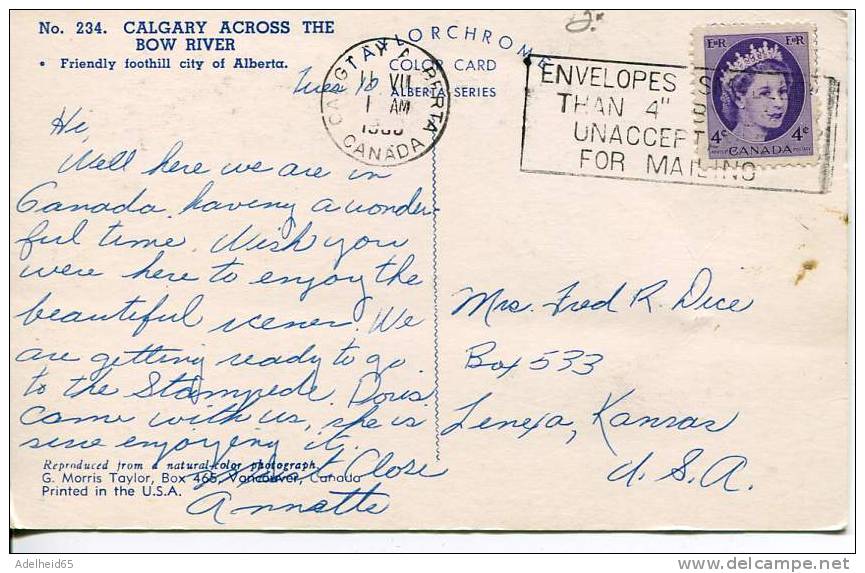 No. 234. CALGARY ACROSS THE
BOW RIVER
• Friendly foothill city of Alberta.
TAYLORCHROME
COLOR CARD
ALBERTA SERIES
CALGARY ALBERTA
11 VII
1 AM
CANADA
ENVELOPES
THAN 4"
UNACCEPT
FOR MAILING
E II R E II R
4c 4c
CANADA
Tues 10
Hi,
Well here we are in
Canada having a wonder-
ful time. Wish you
were here to enjoy the
beautiful scenery. We
are getting ready to go
to the Stampede. Doris
came with us, she is
sure enjoying it.
Close
Annette
Mrs. Fred R. Dice
Box 533
Lenexa, Kansas
U.S.A.
Reproduced from a natural-color photograph.
G. Morris Taylor, Box 465, Vancouver, Canada
Printed in the U.S.A.
Adelheid65
delcampe.net